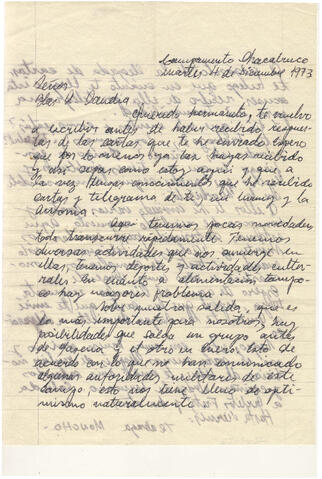 Campamento Chacabuco
martes 4 de Diciembre 1973
Señor
Querido hermanito, te vuelvo
a escribir antes de haber recibido respues-
tas de las cartas que te he enviado espero
que por lo menos ya las hayas recibido
y así sepas como estoy aquí y que a
la vez tienes conocimiento que he recibido
cartas y telegrama de ti, mi mamy y la
Antonia.
Aquí tenemos pocas novedades,
todo transcurre rapidamente. Tenemos
diversas actividades que nos
ellas, tenemos deportes y actividades cultu-
rales en cuanto a alimentación tampo-
co hay mayores problema.
Sobre nuestra salida, que es
lo más importante para nosotros, hay
posibilidades que salga un grupo antes
de pascua y el otro en enero, esto de
acuerdo con lo que nos han comunicado
algunas autoridades militares de este
campo esto nos tiene lleno de opti-
mismo naturalmente.